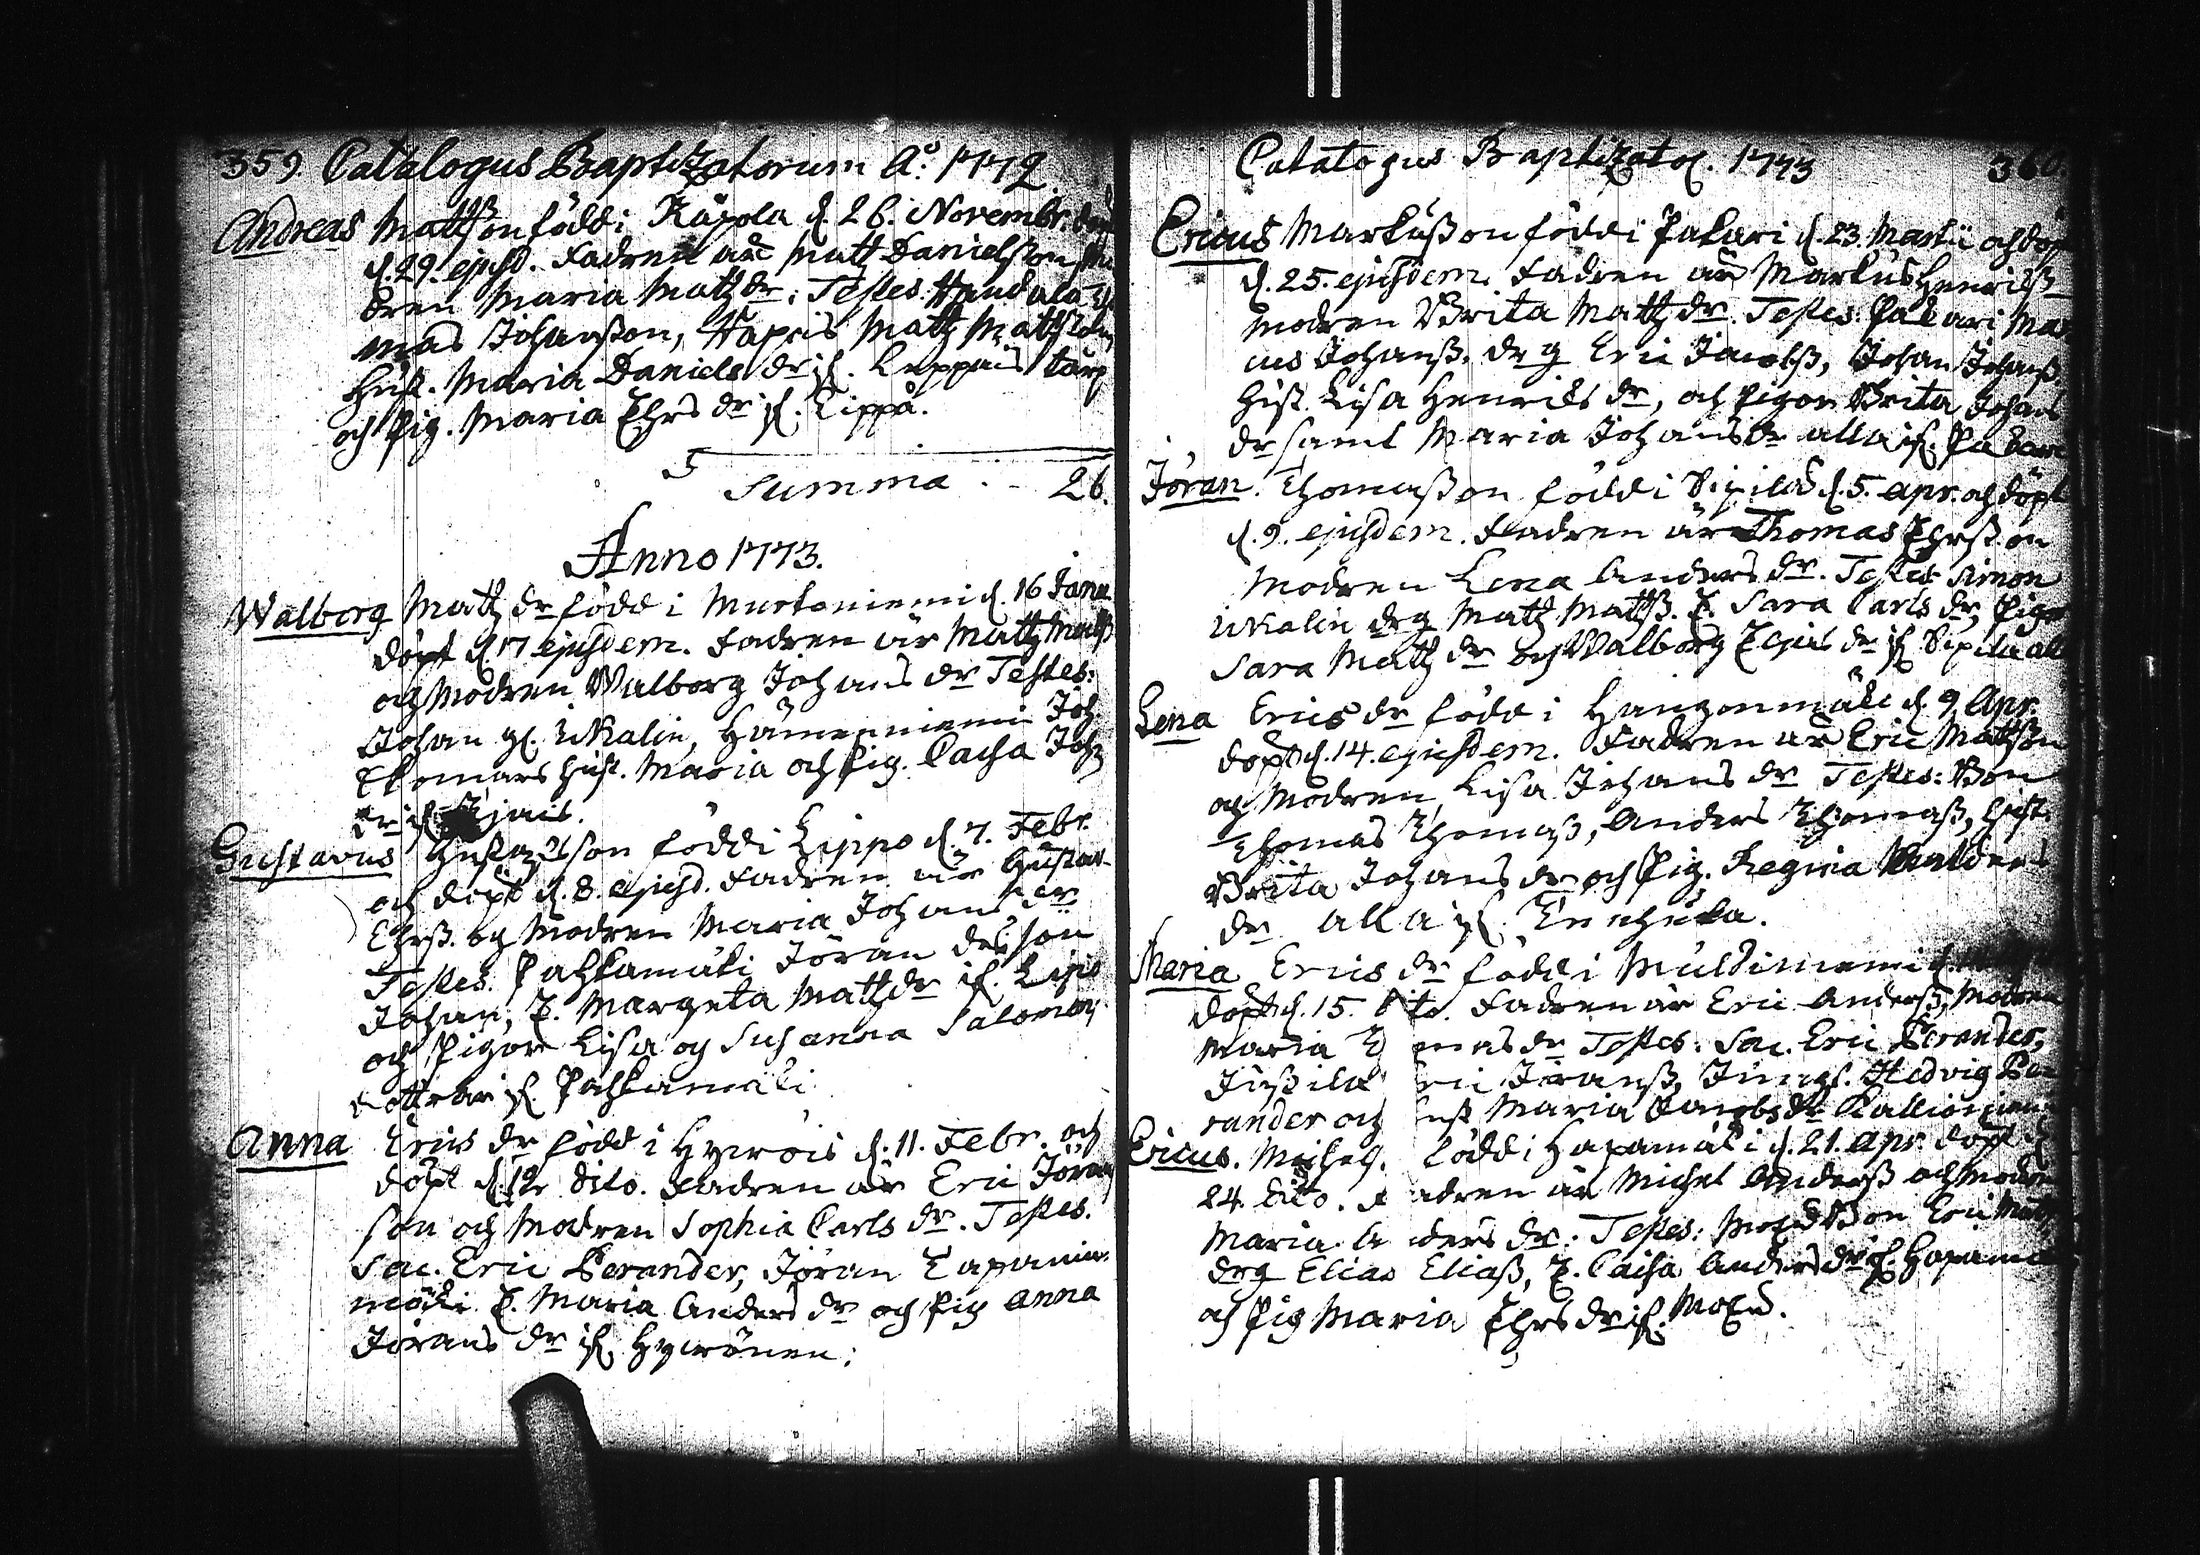 359. Catalogus Baptizatorum Ao. 1772.
Andreas Mattsson född i Käpola d. 26. Novembr. döpt
d. 29. ejusd. Fadren är Matz Danielsson
dren Maria Matz dr. Testes
mas Johansson, Matz Mattsson
Hust. Maria Daniels dr if.
och Pig. Maria Ehrs dr if. Lippå.
Summa . . 26.
Anno 1773.
Walborg Matz dr född i Mustoniemi d. 16 Janu.
döpt d. 17 ejusdem. Fadren är Matz Matss
och Modren Walborg Johans dr Testes:
Johan gl. Ukkalin, Hämenniemi Joh
Thomas Hust. Maria och Pig. Caisa Joh
dr if
Gustavus Gustafsson född i Lippo d. 7. Febr.
och döpt d. 8. ejusd. Fadren är Gustav
Ehrss. og Modren Maria Johans dr
Testes. Pahkamäki Jöran dess son
Johan, E. Margeta Matz dr if. Lipo
och Pigor Lisa og Susanna Salomons
döttrar if. Pahkamäki
Anna Erics dr född i Hywöis d. 11. Febr. och
döpt d. 12 dito. Fadren är Eric Jörans
son och Modren Sophia Carls dr. Testes.
Sac. Eric Perander, Jöran Tapanin
mäki E. Maria Anders dr och Pig Anna
Jörans dr if. Hywönen.
Catalogus Baptizator. 1773 360.
Ericus Markusson född i Pakari d. 23. Martii och döpt
d. 25. ejusdem. Fadren är Markus Henrikss
Modren Brita Matz dr. Testes: Pakari Mar
cus Johanss. drg Eric Jacobss, Johan Johanss
Hust. Lisa Henrics dr, och Pigor Brita Johans
dr samt Maria Johans dr alla if. Pakari
Jöran. Thomasson född i Sipilä d. 5. Apr. och döpt
d. 9. ejusdem. Fadren är Thomas Ehrsson
Modren Lena Anders dr. Testes Simon
Ukkalin drg Matz Matss. E. Sara Carls dr, Pigor
Sara Matz dr och Walborg dr if. Sipilä all
Lena Erics dr född i Hangonmäki d. 9. Apr.
döpt d. 14. ejusdem. Fadren är Eric Mattson
och Modren Lisa Johans dr Testes: Bon
Thomas Thomass, Anders Thomass, Hust.
Brita Johans dr och Pig. Regina
dr alla if.
Maria Erics dr född i Muldiniemi d.
döpt d. 15. dito. Fadren är Eric Anderss, Modren
Maria Thomas dr Testes: Sac. Eric Perander,
Jussila Eric Jöranss, Jungf. Hedvig Pe
rander och Hust Maria Jacobs dr Kallioniemi
Ericus. Michels. född i Hapamäki d. 21. Apr. döpt d
24. dito. Fadren är Michel Anderss och Modren
Maria Anders dr. Testes: Bon Eric Matz
drg Elias Eliass, E. Caisa Anders dr if. Hapamä
och Pig Maria Ehrs dr if.